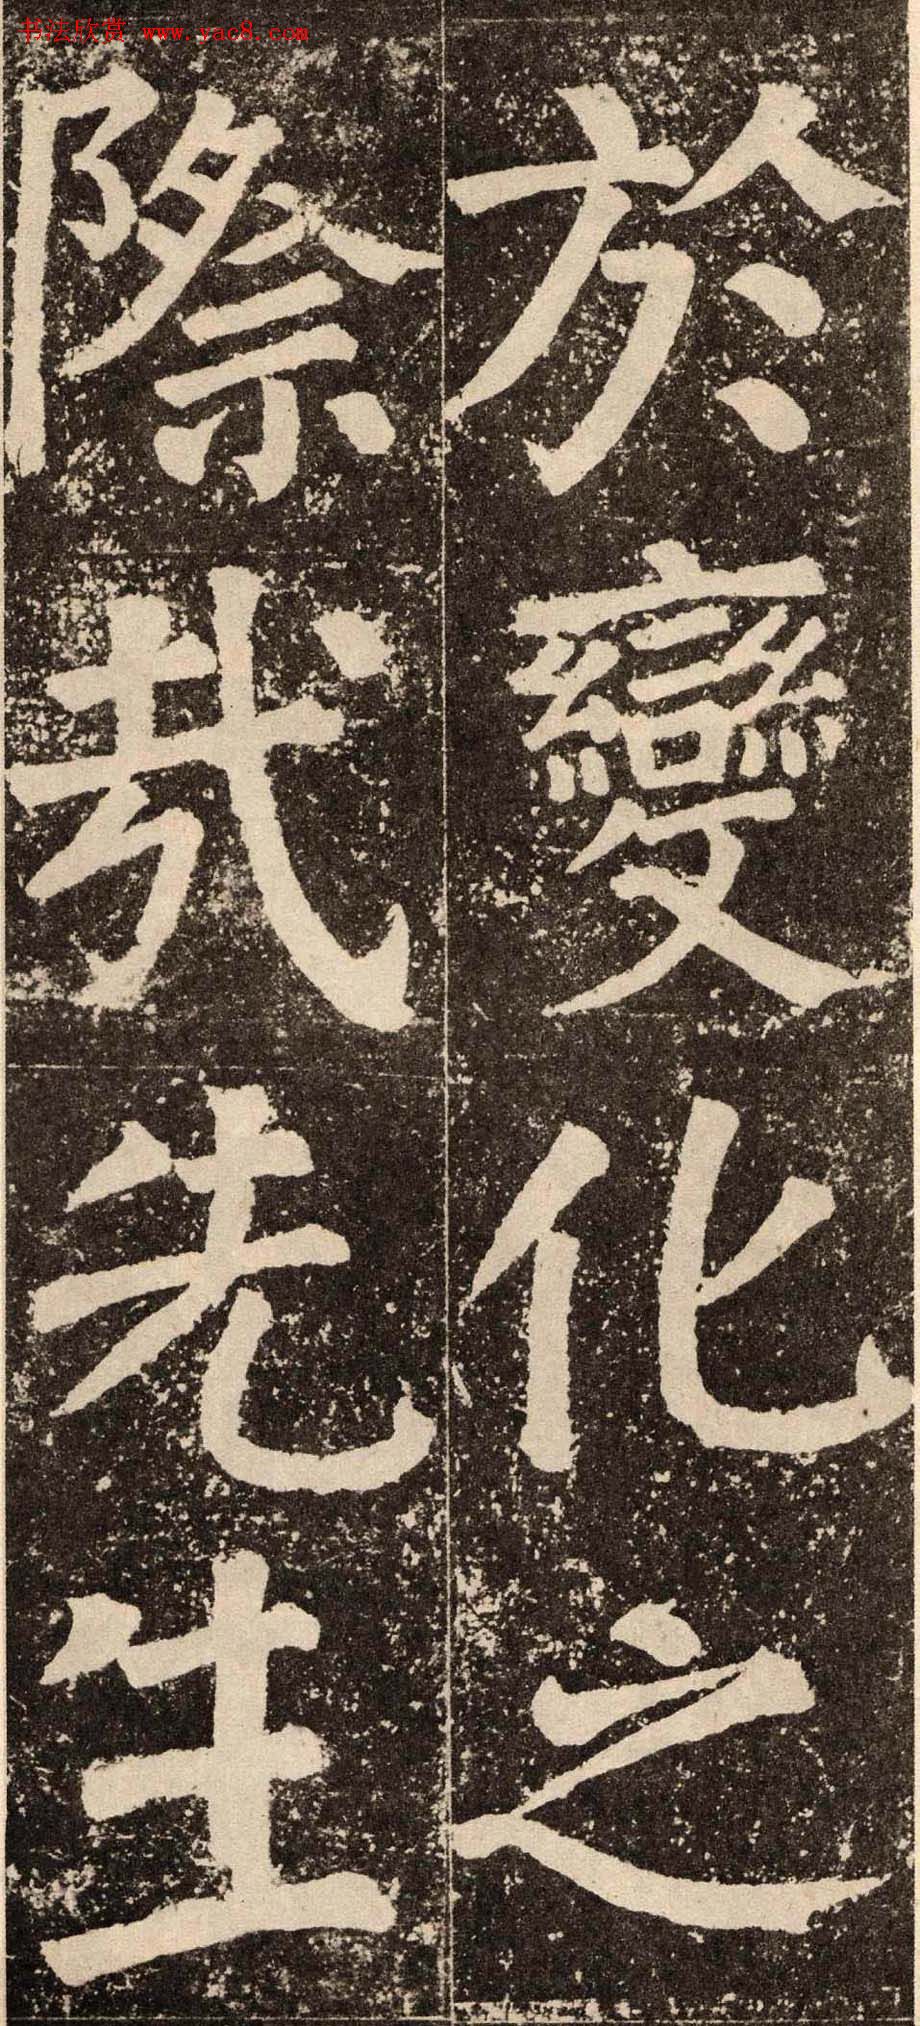 书法欣赏 www.yac8.com
於變化之
際哉先生